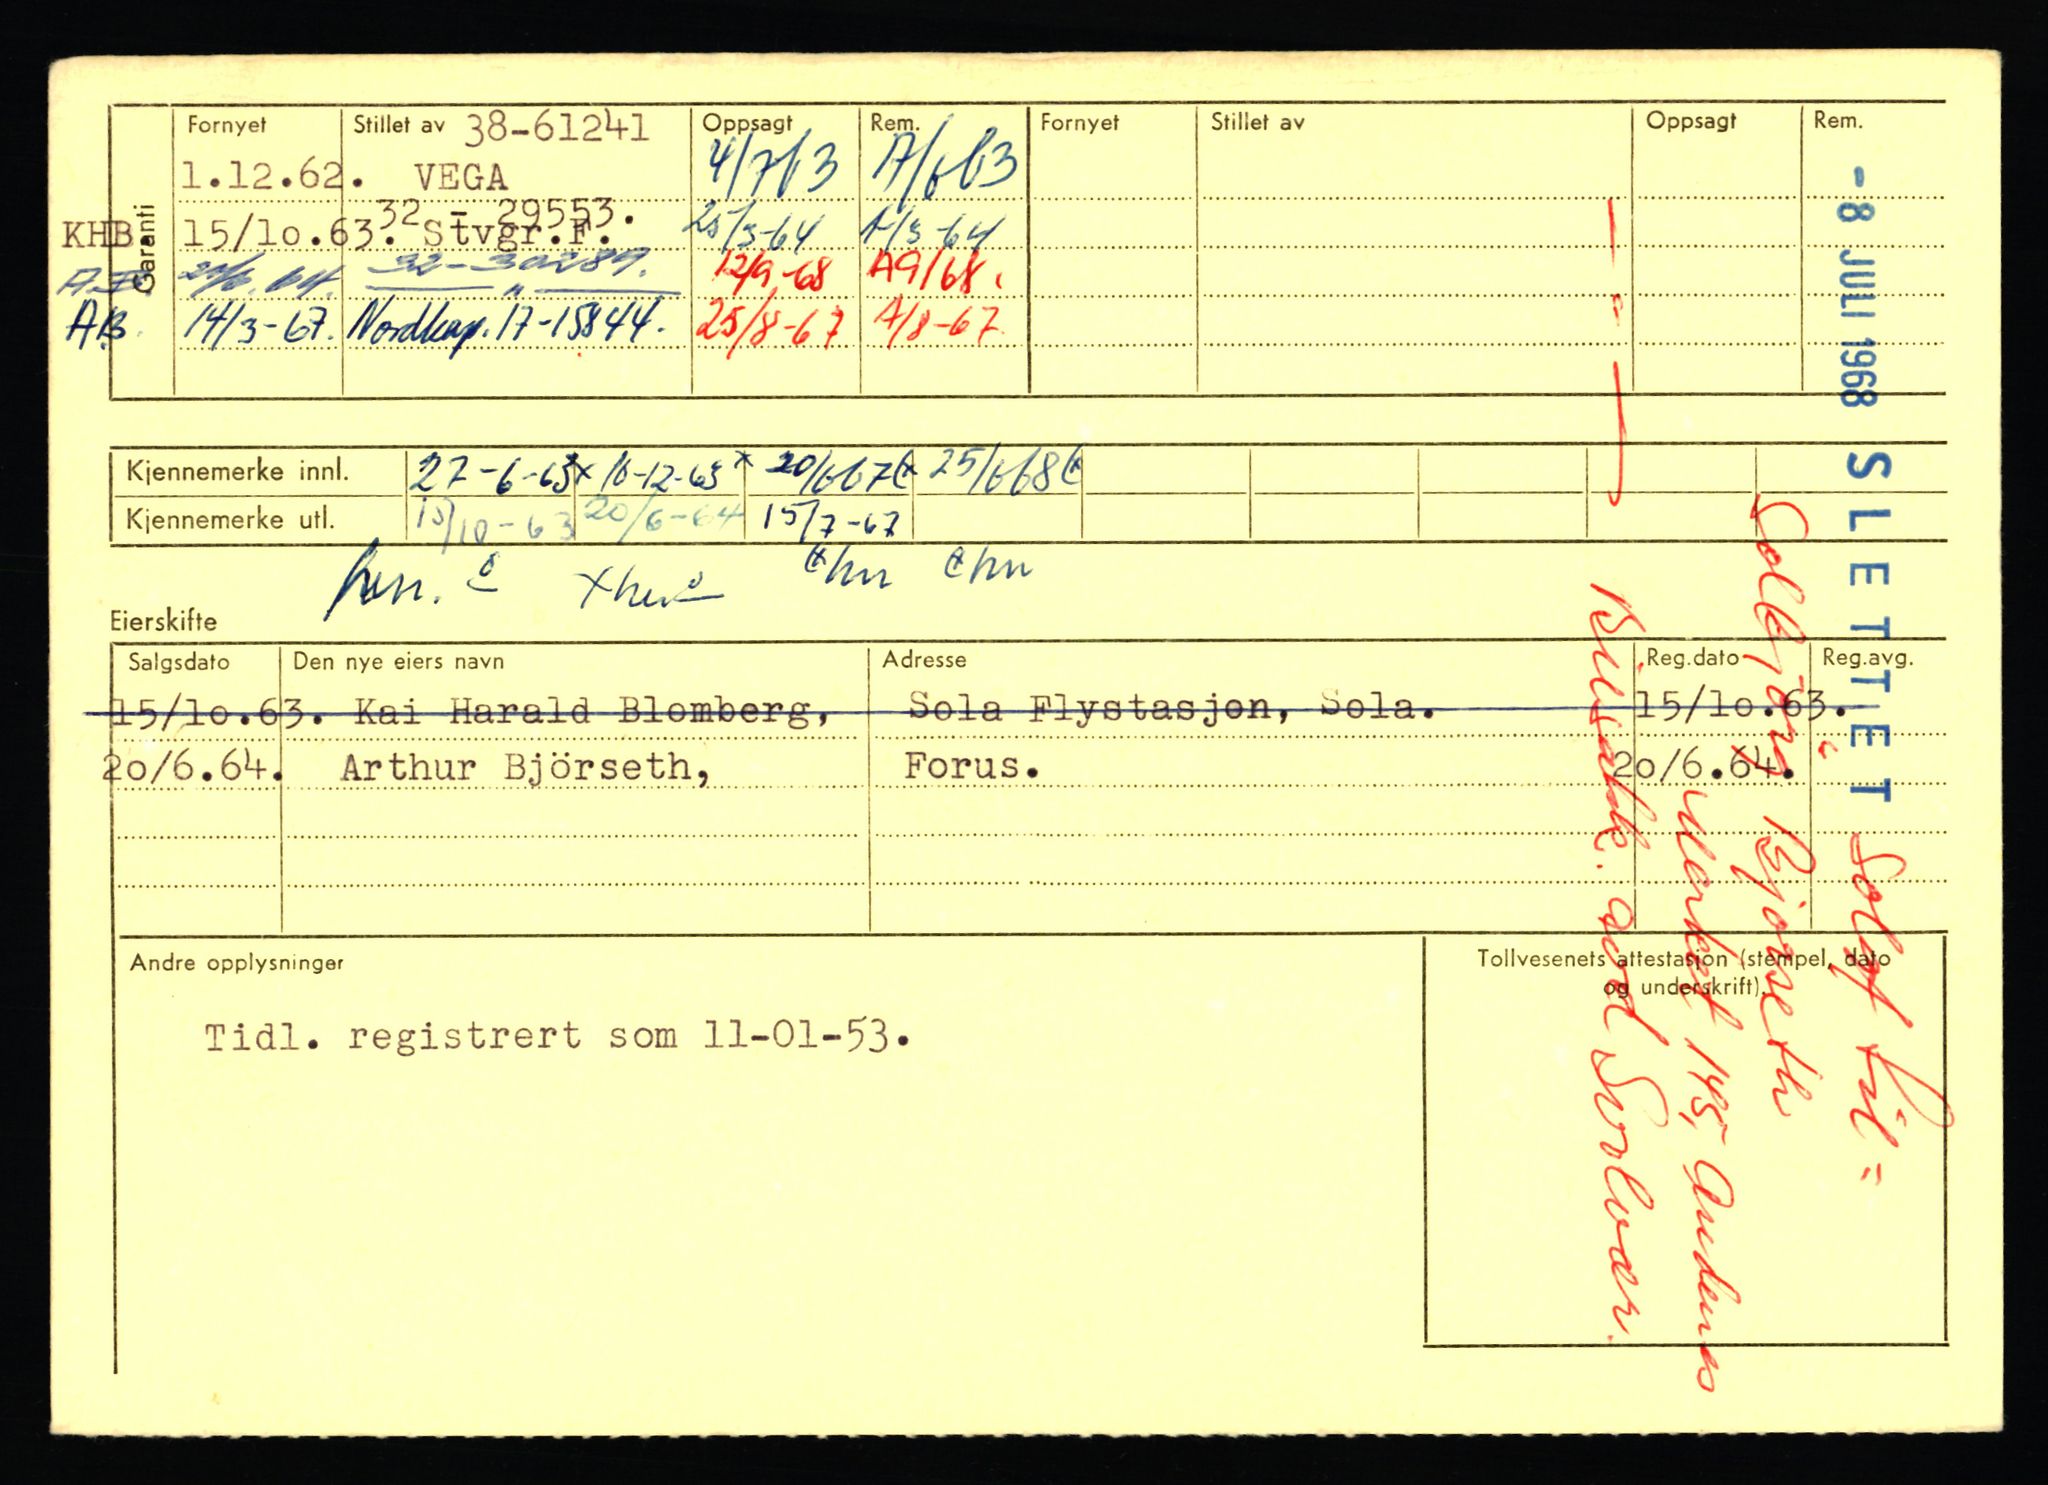 Garanti
Fornyet Stillet av 38-61241 Oppsagt Rem. Fornyet Stillet av Oppsagt Rem.
1.12.62. VEGA 4/7 63 A/6 63
32 - 29553.
KHB. 15/10.63. Stvgr.F. 25/3-64 A/3-64
32-30289. 12/9-68 A9/68.
A.B. 14/3-67. Nordkap. 17-15844. 25/8-67 A/8-67
Kjennemerke innl. 27-6-63 x 16-12-63 x 20/6 67 25/6 68
Kjennemerke utl. 15/10-63 20/6-64 15/7-67
Eierskifte
Salgsdato Den nye eiers navn Adresse Reg.dato Reg.avg.
15/10.63. Kai Harald Blomberg, Sola Flystasjon, Sola. 15/10.63.
20/6.64. Arthur Björseth, Forus. 20/6.64.
Andre opplysninger
Tollvesenets attestasjon (stempel, dato
og underskrift).
Tidl. registrert som 11-01-53.
- 8 JULI 1968 SLETTET
Solgt til =
Solbjörg Bjørseth
Merket 195, Andenes
Bilsakk. avd Svolvær.